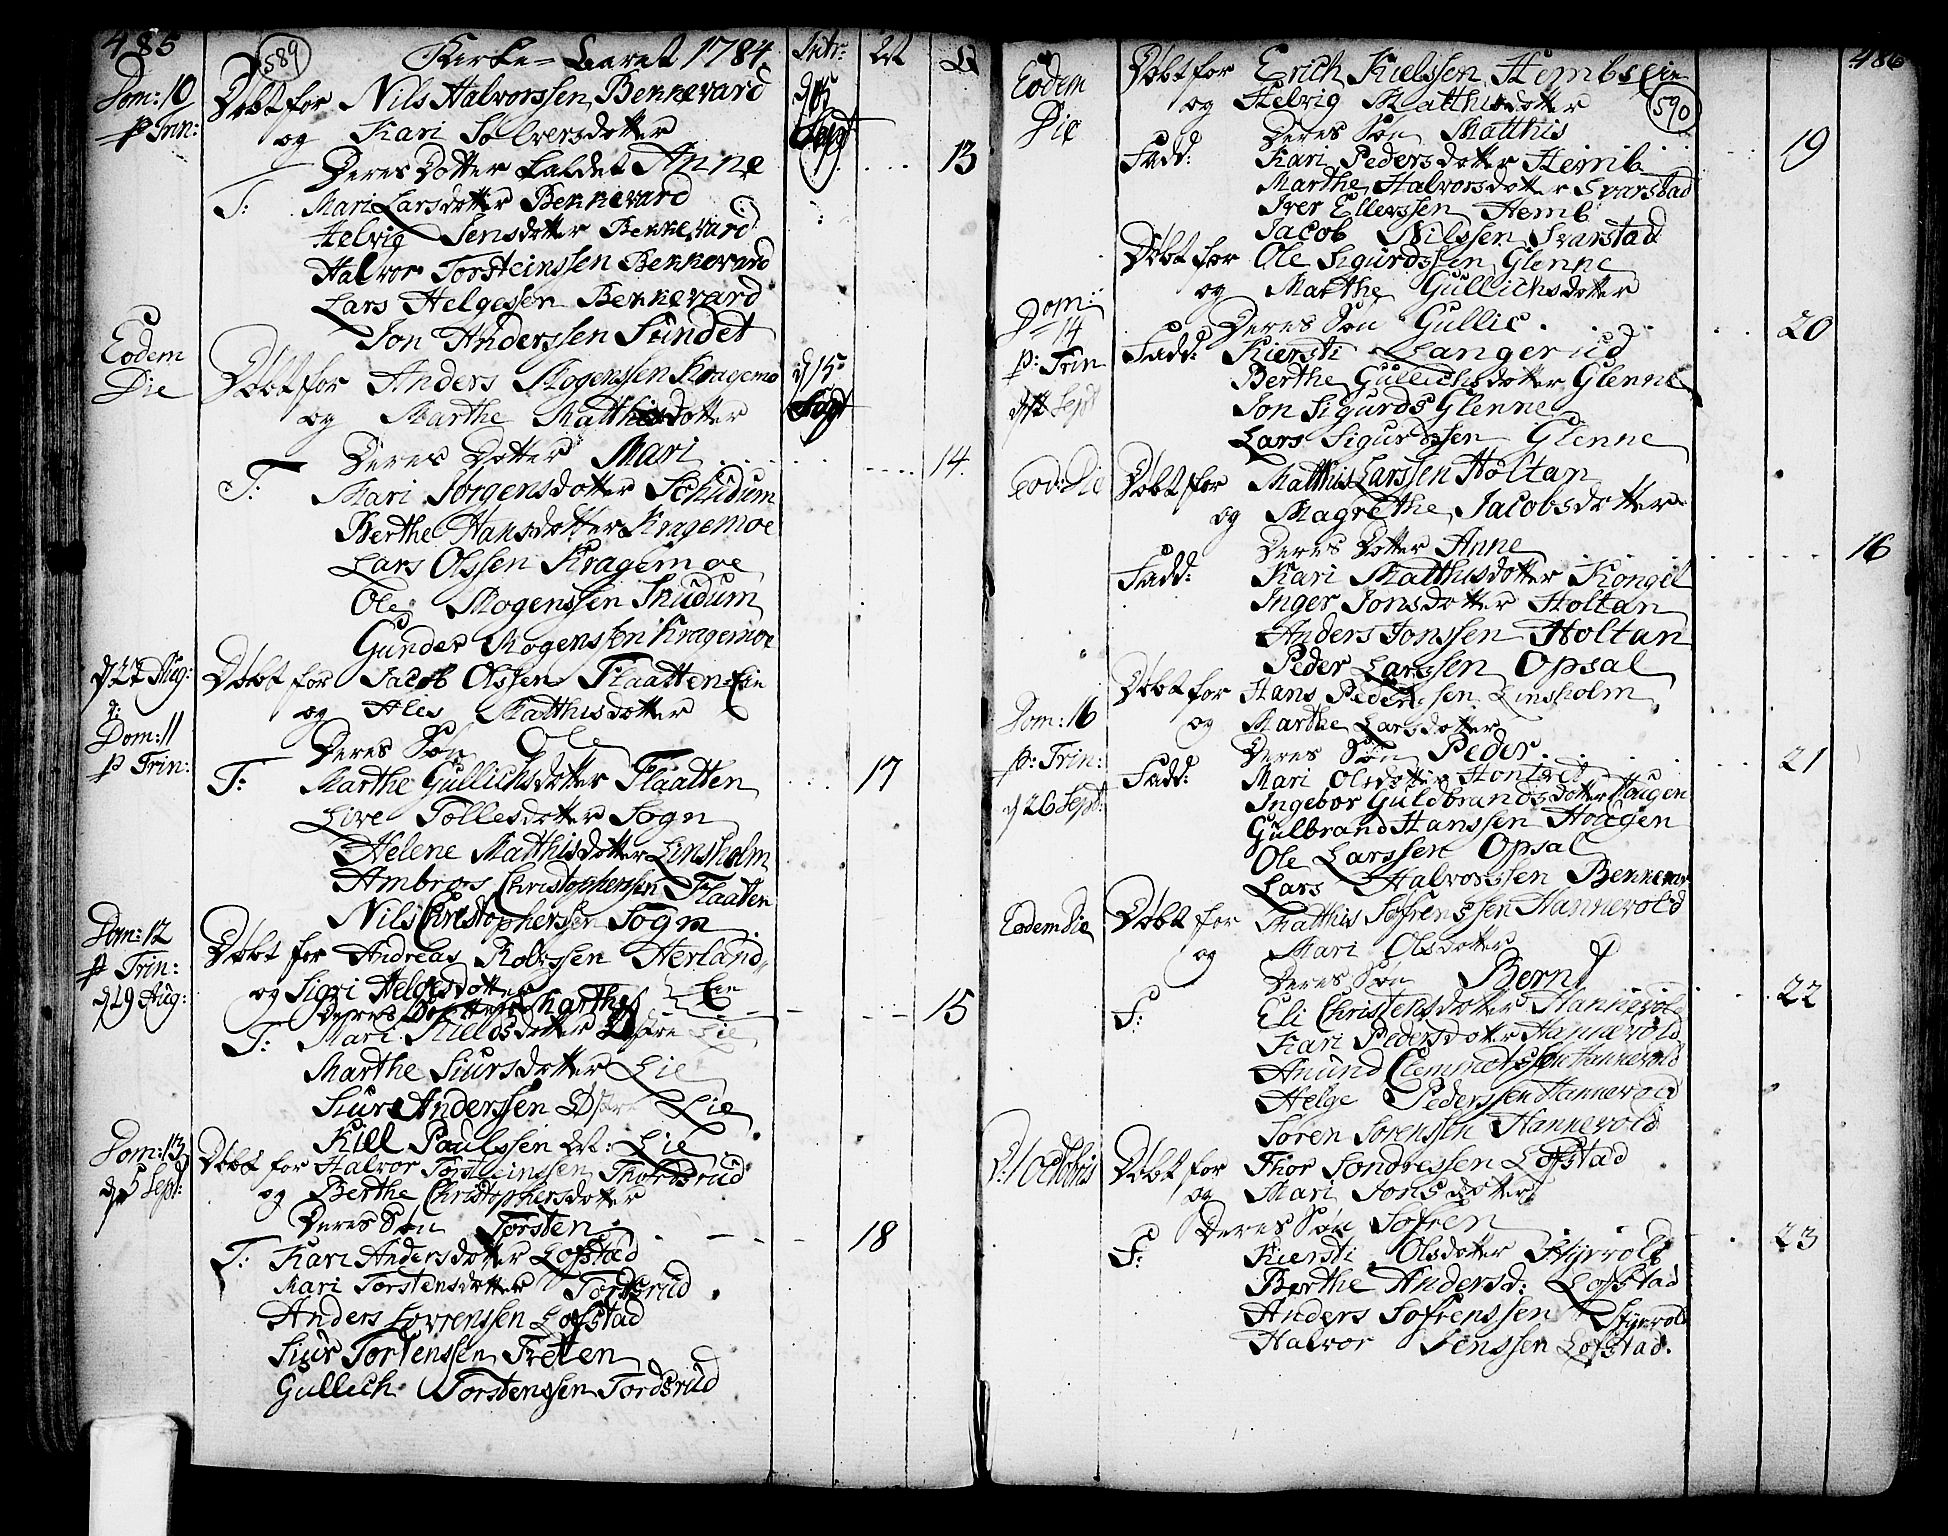 485
589
Kirke-Aaret 1784
Intr:
Dom: 10
p Trin:
Døbt for Nils Halvorssen Bennevard
og Kari Solversdotter
Deres Dotter kaldet Anne
13
T: Mari Larsdotter Bennevard
Helvig Jensdotter Bennevard
Halvor Torsteinssen Bennevard
Lars Helgessen Bennevard
Jon Anderssen Sundet
Eodem
Die
Døbt for Anders Mogenssen Kragemo
d 15
Sept
og Marthe Matthisdotter
Deres Dotter Mari
14
T: Mari Jorgensdotter Schudum
Berthe Hansdotter Kragemoe
Lars Olssen Kragemoe
Ole Mogenssen Skudum
Gunder Mogenssen Kragemoe
d 22 Aug:
Dom: 11
p Trin:
Døbt for Jacob Olssen Flaatten Eie
og Alis Matthisdotter
Deres Søn Ole
17
T: Marthe Gullichsdotter Flaatten
Live Tollesdotter Sogn
Helene Matthisdotter Linsholm
Ambros Christophersen Flaatten
Nils Christophersen Sogn
Dom: 12
p Trin:
d 29 Aug:
Døbt for Andreas Roløssen Herland
og Sigri Helgesdotter Eie
Deres Dotter Marthe
15
T: Mari Kieldsdotter Øfre Lie
Marthe Siursdotter Lie
Siur Anderssen Øfre Lie
Kill Paulssen Lie
Dom: 13
d 5 Sept:
Døbt for Halvor Torsteinssen Thordsrud
og Berthe Christophersdotter
Deres Søn Torsten
18
T: Kari Andersdotter Lofstad
Mari Torstensdotter Tordsrud
Anders Sovrenssen Lofstad
Siur Tortenssen Treten
Gullich Torstenssen Tordsrud
486
590
Eodem
Die
Døbt for Erich Kielssen Hembs Eie
og Helvig Matthisdotter
Deres Søn Matthis
19
Fadd: Kari Pedersdotter Hemb
Marthe Halvorsdotter Svarstad
Iver Ellerssen Hemb
Jacob Nilssen Svarstad
Dom
14
p: Trin
d 12 Sept
Døbt for Ole Sigurdssen Glenne
og Marthe Gullichsdotter
Deres Søn Gullic
20
Fadd: Kiersti Langerud
Berthe Gullichsdotter Glenne
Jon Sigurds Glenne
Lars Sigurdssen Glenne
Eod: Die
Døbt for Matthis Larssen Holtan
og Magrethe Jacobsdotter
Deres Dotter Anne
16
Fadd: Kari Matthisdotter Kongel
Inger Jonsdotter Holtan
Anders Jonssen Holtan
Peder Larssen Opsal
Dom: 16
p: Trin:
d 26 Sept:
Døbt for Hans Pederssen Linsholm
og Marthe Larsdotter
Deres Søn Peder
21
Fadd: Mari Olsdotter Hontvet
Ingebor Guldbrandsdotter Haugen
Gulbrand Hanssen Haugen
Ole Larssen Opsal
Lars Halvorssen Bennevar
Eodem die
Døbt for Matthis Sofrenssen Hannevold
og Mari Olsdotter
Deres Søn Bernt
22
F: Eli Christensdotter Hannevold
Kari Pedersdotter Hannevold
Anund Clemmetssen Hannevold
Helge Pederssen Hannevold
Soren Sorenssen Hannevold
D: 1 Octobris
Døbt for Thor Sondressen Lofstad
og Mari Jonsdotter
Deres Søn Sofren
23
F: Kiersti Olsdotter Styrvold
Berthe Andersd: Lofstad
Anders Sofrenssen Styrvold
Halvor Jenssen Lofstad.